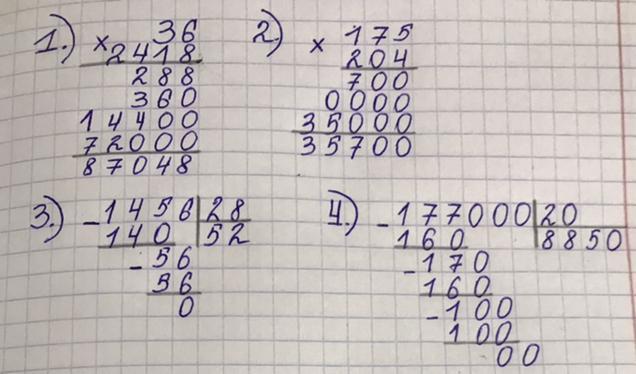 1.) × 36
2418
288
360
14400
72000
87048
2.) × 175
204
700
0000
35000
35700
3.) - 1456 | 28
140 52
- 56
56
0
4.) - 177000 | 20
160 8850
- 170
160
- 100
100
00